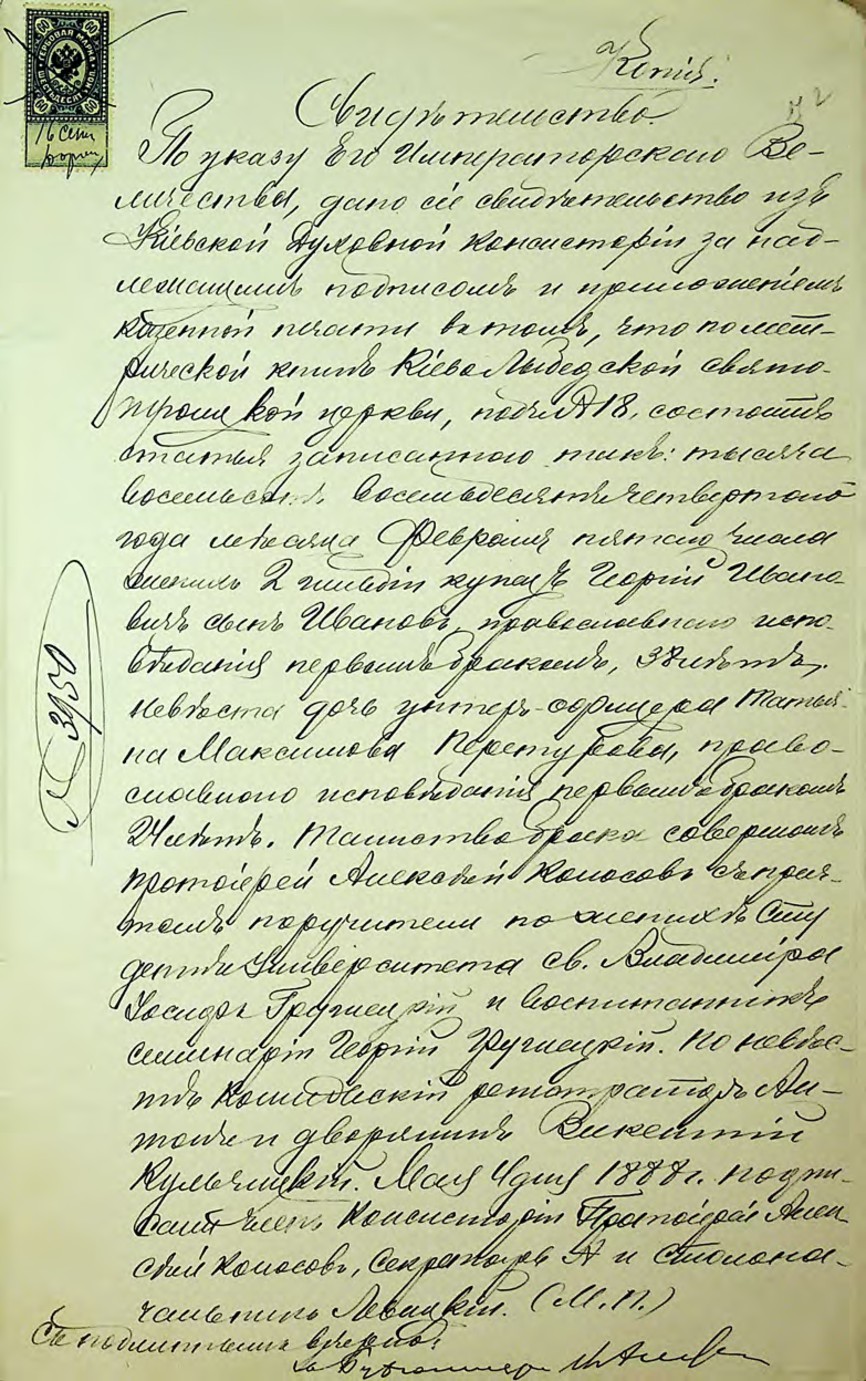 60 60
ГЕРБОВАЯ МАРКА
ШЕСТЬДЕСЯТ КОП.
60 60
16 Сен
Копія.
Свидѣтельство.
По указу Его Императорскаго Ве-
личества, дано сіе свидѣтельство изъ
Кіевской Духовной Консисторіи за над-
лежащимъ подписомъ и приложеніемъ
казенной печати въ томъ, что по мет-
рической книгѣ Кіево Лыбедской свято-
троицкой церкви, подъ № 18, состоитъ
статья записанною такъ: тысяча
восемьсотъ восемьдесятъ четвертого
года месяца Февраля пятаго числа
женихъ 2 гильдіи купецъ Георгій Ивано
вичъ сынъ Ивановъ, православнаго испо-
вѣданія первымъ бракомъ, 38 лѣтъ,
невѣста дочь унтеръ-офицера Татья-
на Максимова Перетурова, право-
славного исповѣданія первымъ бракомъ
24 лѣтъ. Таинство брака совершалъ
протоіерей Алексѣй Колосовъ съ прич-
томъ поручители по женихѣ Сту
дентъ Университета св. Владиміра
Іосифъ и воспитанникъ
семинаріи Георгій По невѣс-
тѣ Ан-
тонъ и дворянинъ Викентій
Кульчицкій. Мая 4 дня 1888 г. Подпи-
сали: членъ Консисторіи Протоіерей Алек
сѣй Колосовъ, Секретарь А и Столона-
чальникъ Левицкій. (М.П.)
Съ подлиннымъ вѣрно:
№ 3950